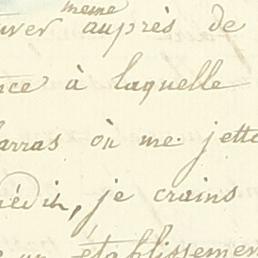 même
uver auprès de
nce à laquelle
arras où me jette
rédit, je crains
un établissemen